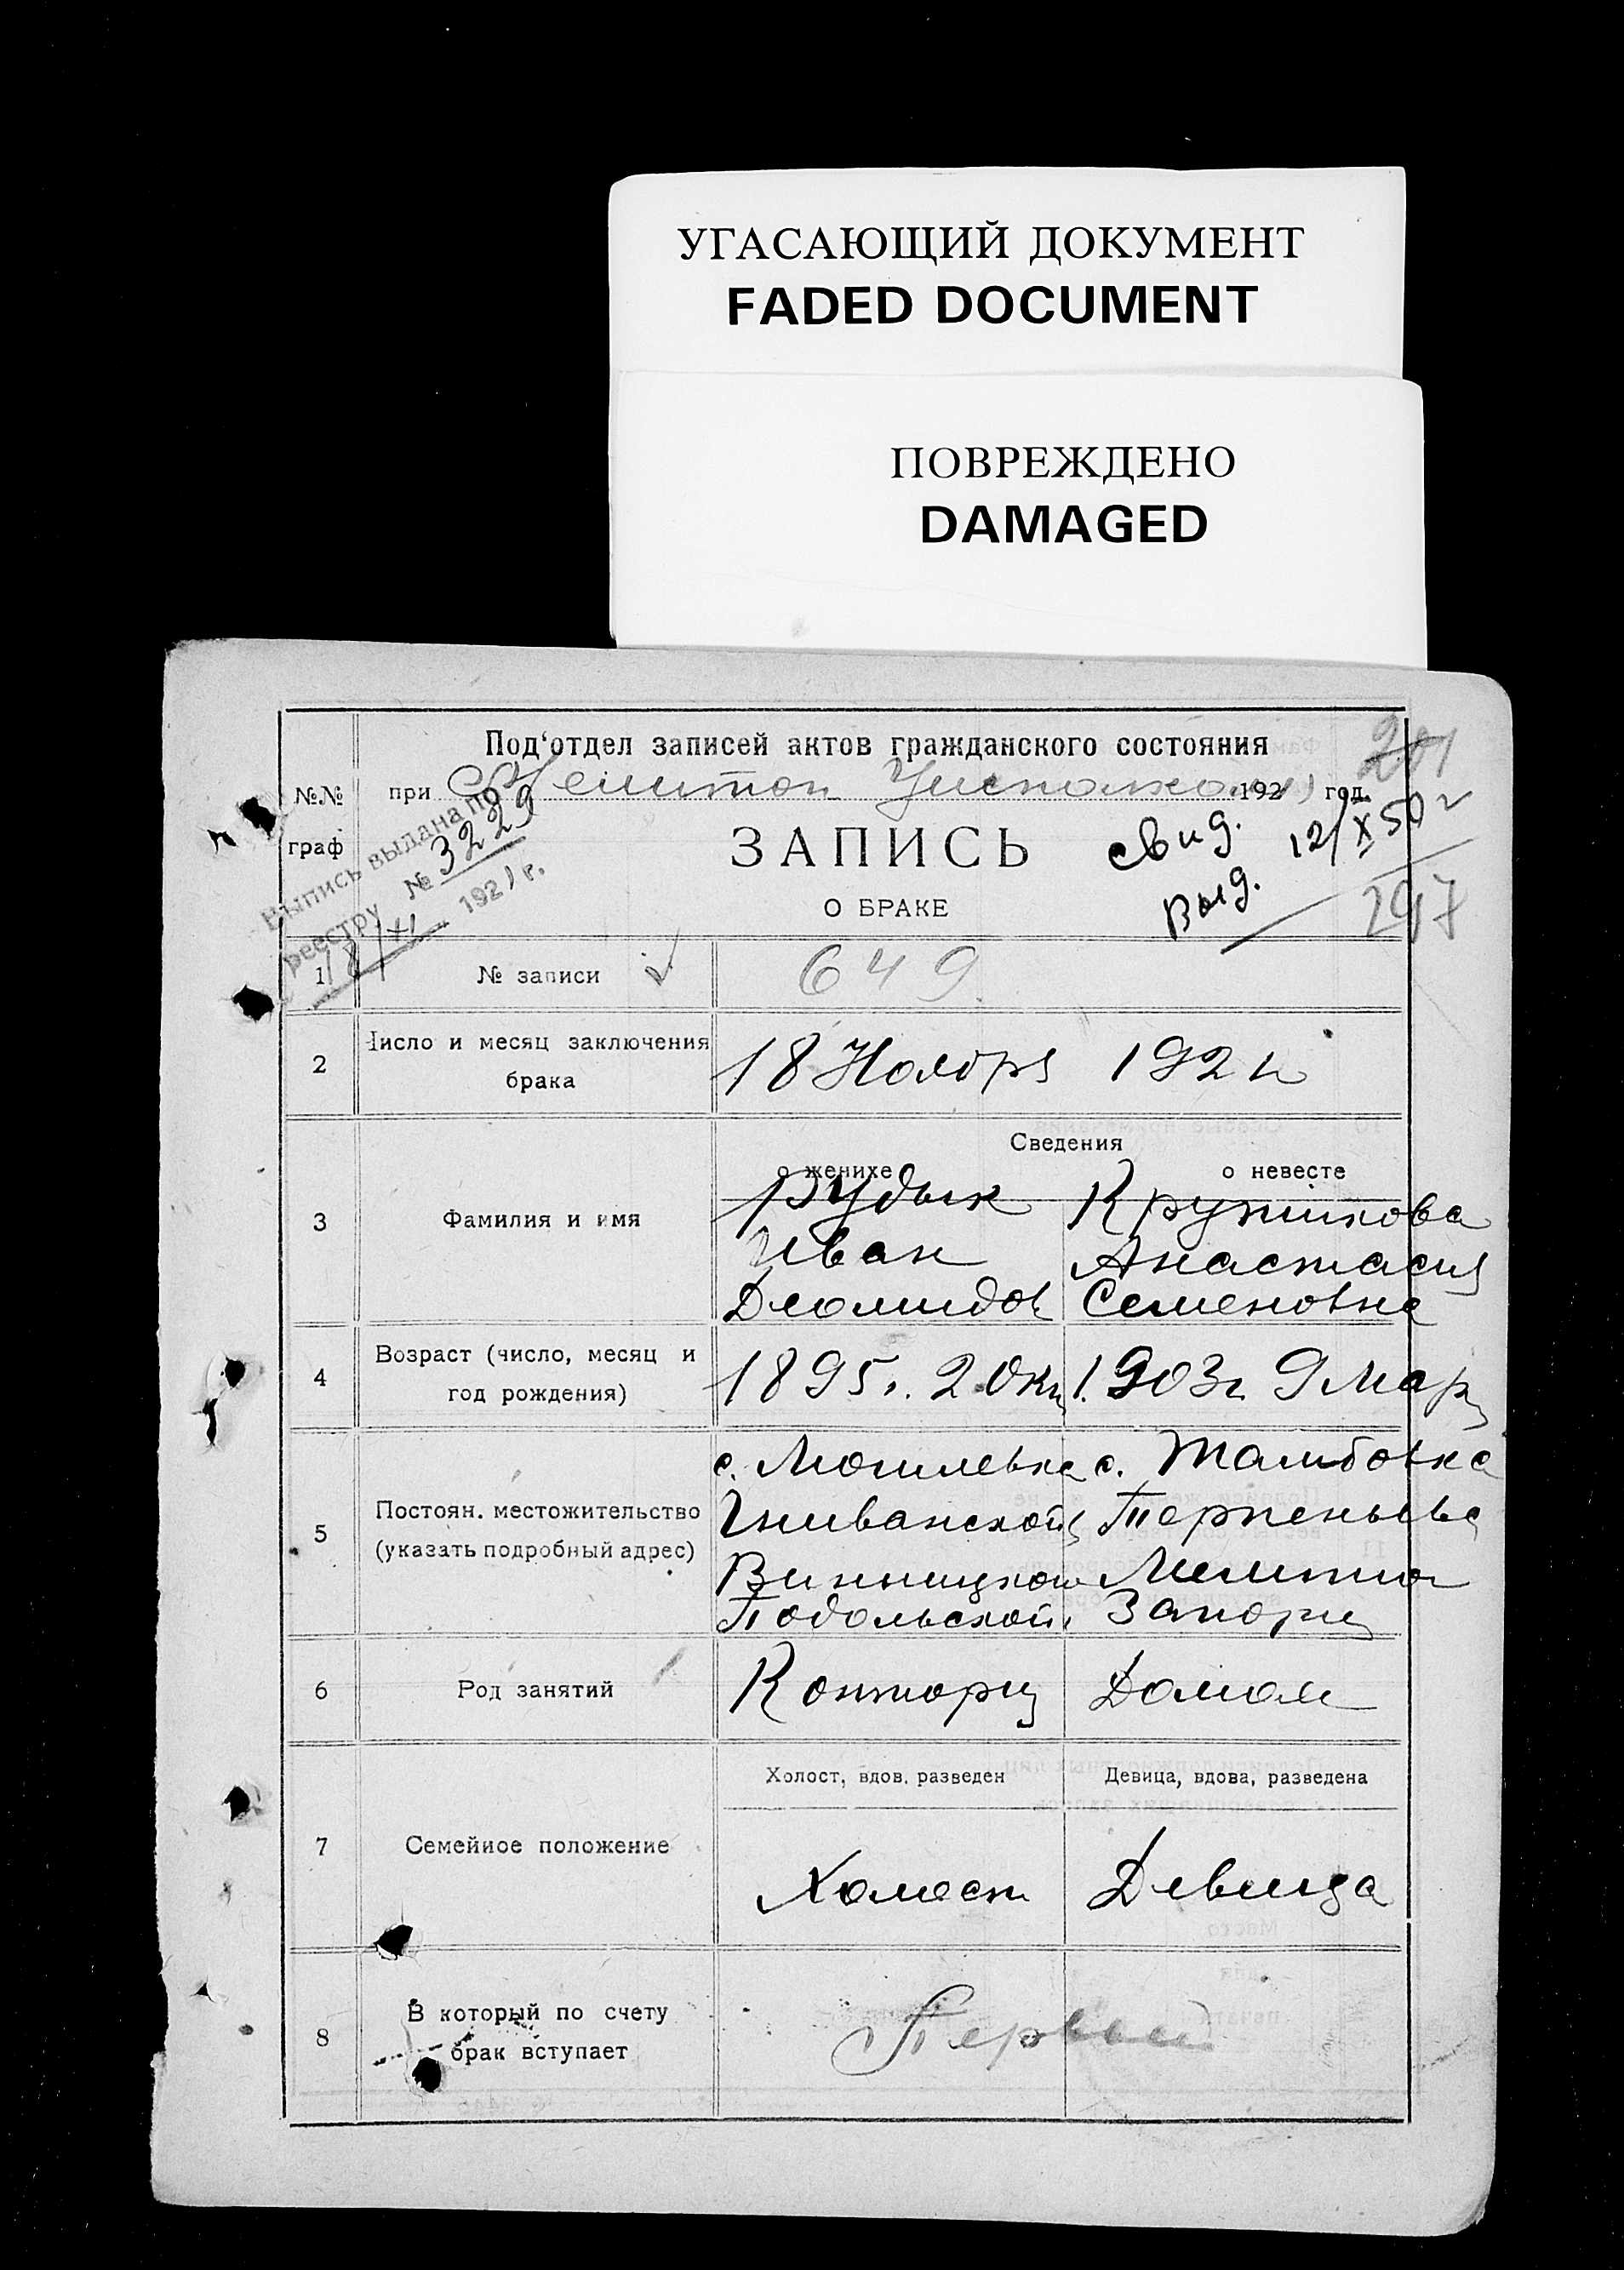 УГАСАЮЩИЙ ДОКУМЕНТ
FADED DOCUMENT
ПОВРЕЖДЕНО
DAMAGED
Под'отдел записей актов гражданского состояния
201
№№ граф
при Мелитоп Уисполком 1921 год.
Выпись выдана по
реестру № 3229
18/XI 1921 г.
ЗАПИСЬ
О БРАКЕ
свид. 12/X 50 г
выд.
297
1 № записи 649
2 Число и месяц заключения
брака
18 Ноября 1921
Сведения
о женихе о невесте
3 Фамилия и имя
Рудык Кружкова
Иван Анастасия
Диомидов Семеновна
4 Возраст (число, месяц и
год рождения)
1895г. 2 Окт 1903г 9 Мар
5 Постоян. местожительство
(указать подробный адрес)
с. Могилевка с. Тамбовка
Гниванской Терпеньевс
Винницкой Мелитоп
Подольской Запорж
6 Род занятий Конторщ Домаш
Холост, вдов, разведен Девица, вдова, разведена
7 Семейное положение
Холост Девица
8 В который по счету
брак вступает
Первый